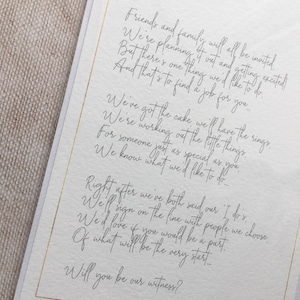 Friends and family will all be invited
We're planning it out and getting excited!
But there's one thing we'd like to do
And that's to find a job for you

We've got the cake, we'll have the rings,
We're working out the little things
For someone just as special as you
We know what we'd like to do...

Right after we've both said our 'I do's,
We'll sign on the line with people we choose
We'd love if you would be a part
Of what will be the very start...

Will you be our witness?